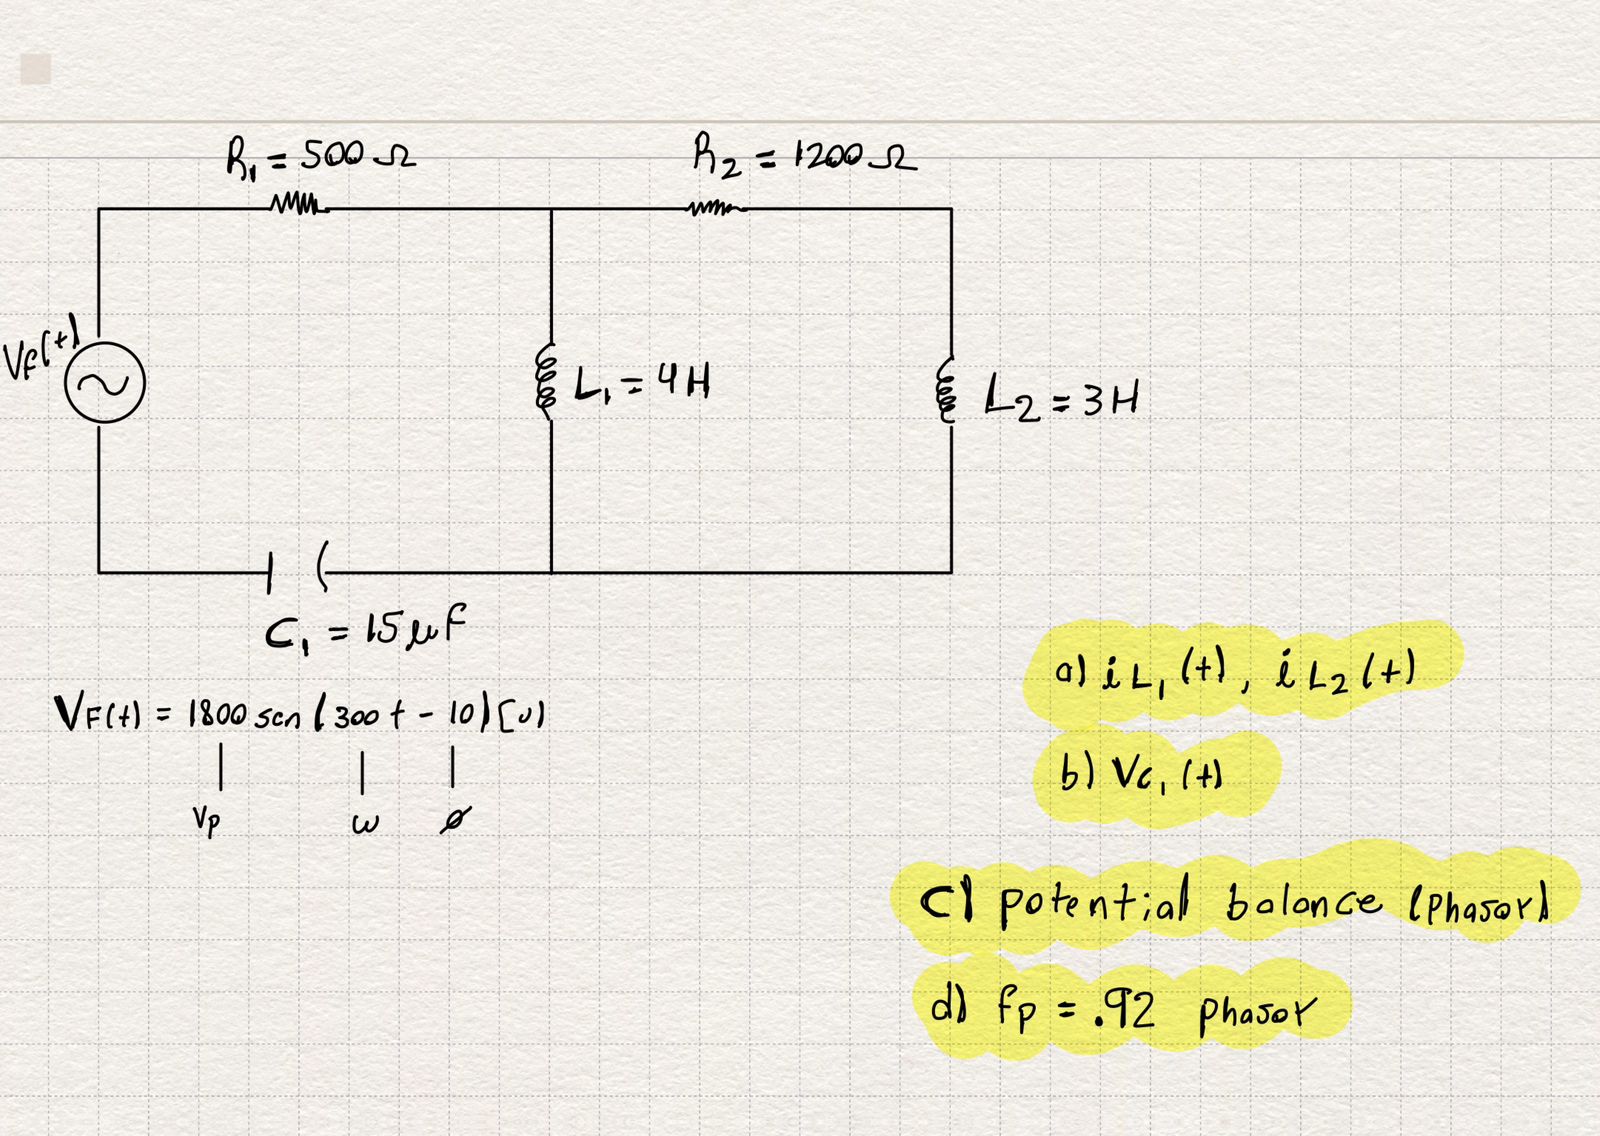 R₁ = 500 Ω
R₂ = 1200 Ω
VF(t)
L₁ = 4 H
L₂ = 3 H
C₁ = 15 μF
VF(t) = 1800 sen (300 t - 10) [v]
Vp
ω
ø
a) i L₁ (t), i L₂ (t)
b) Vc₁ (t)
c) potential balance (phasor)
d) fp = .92 phasor